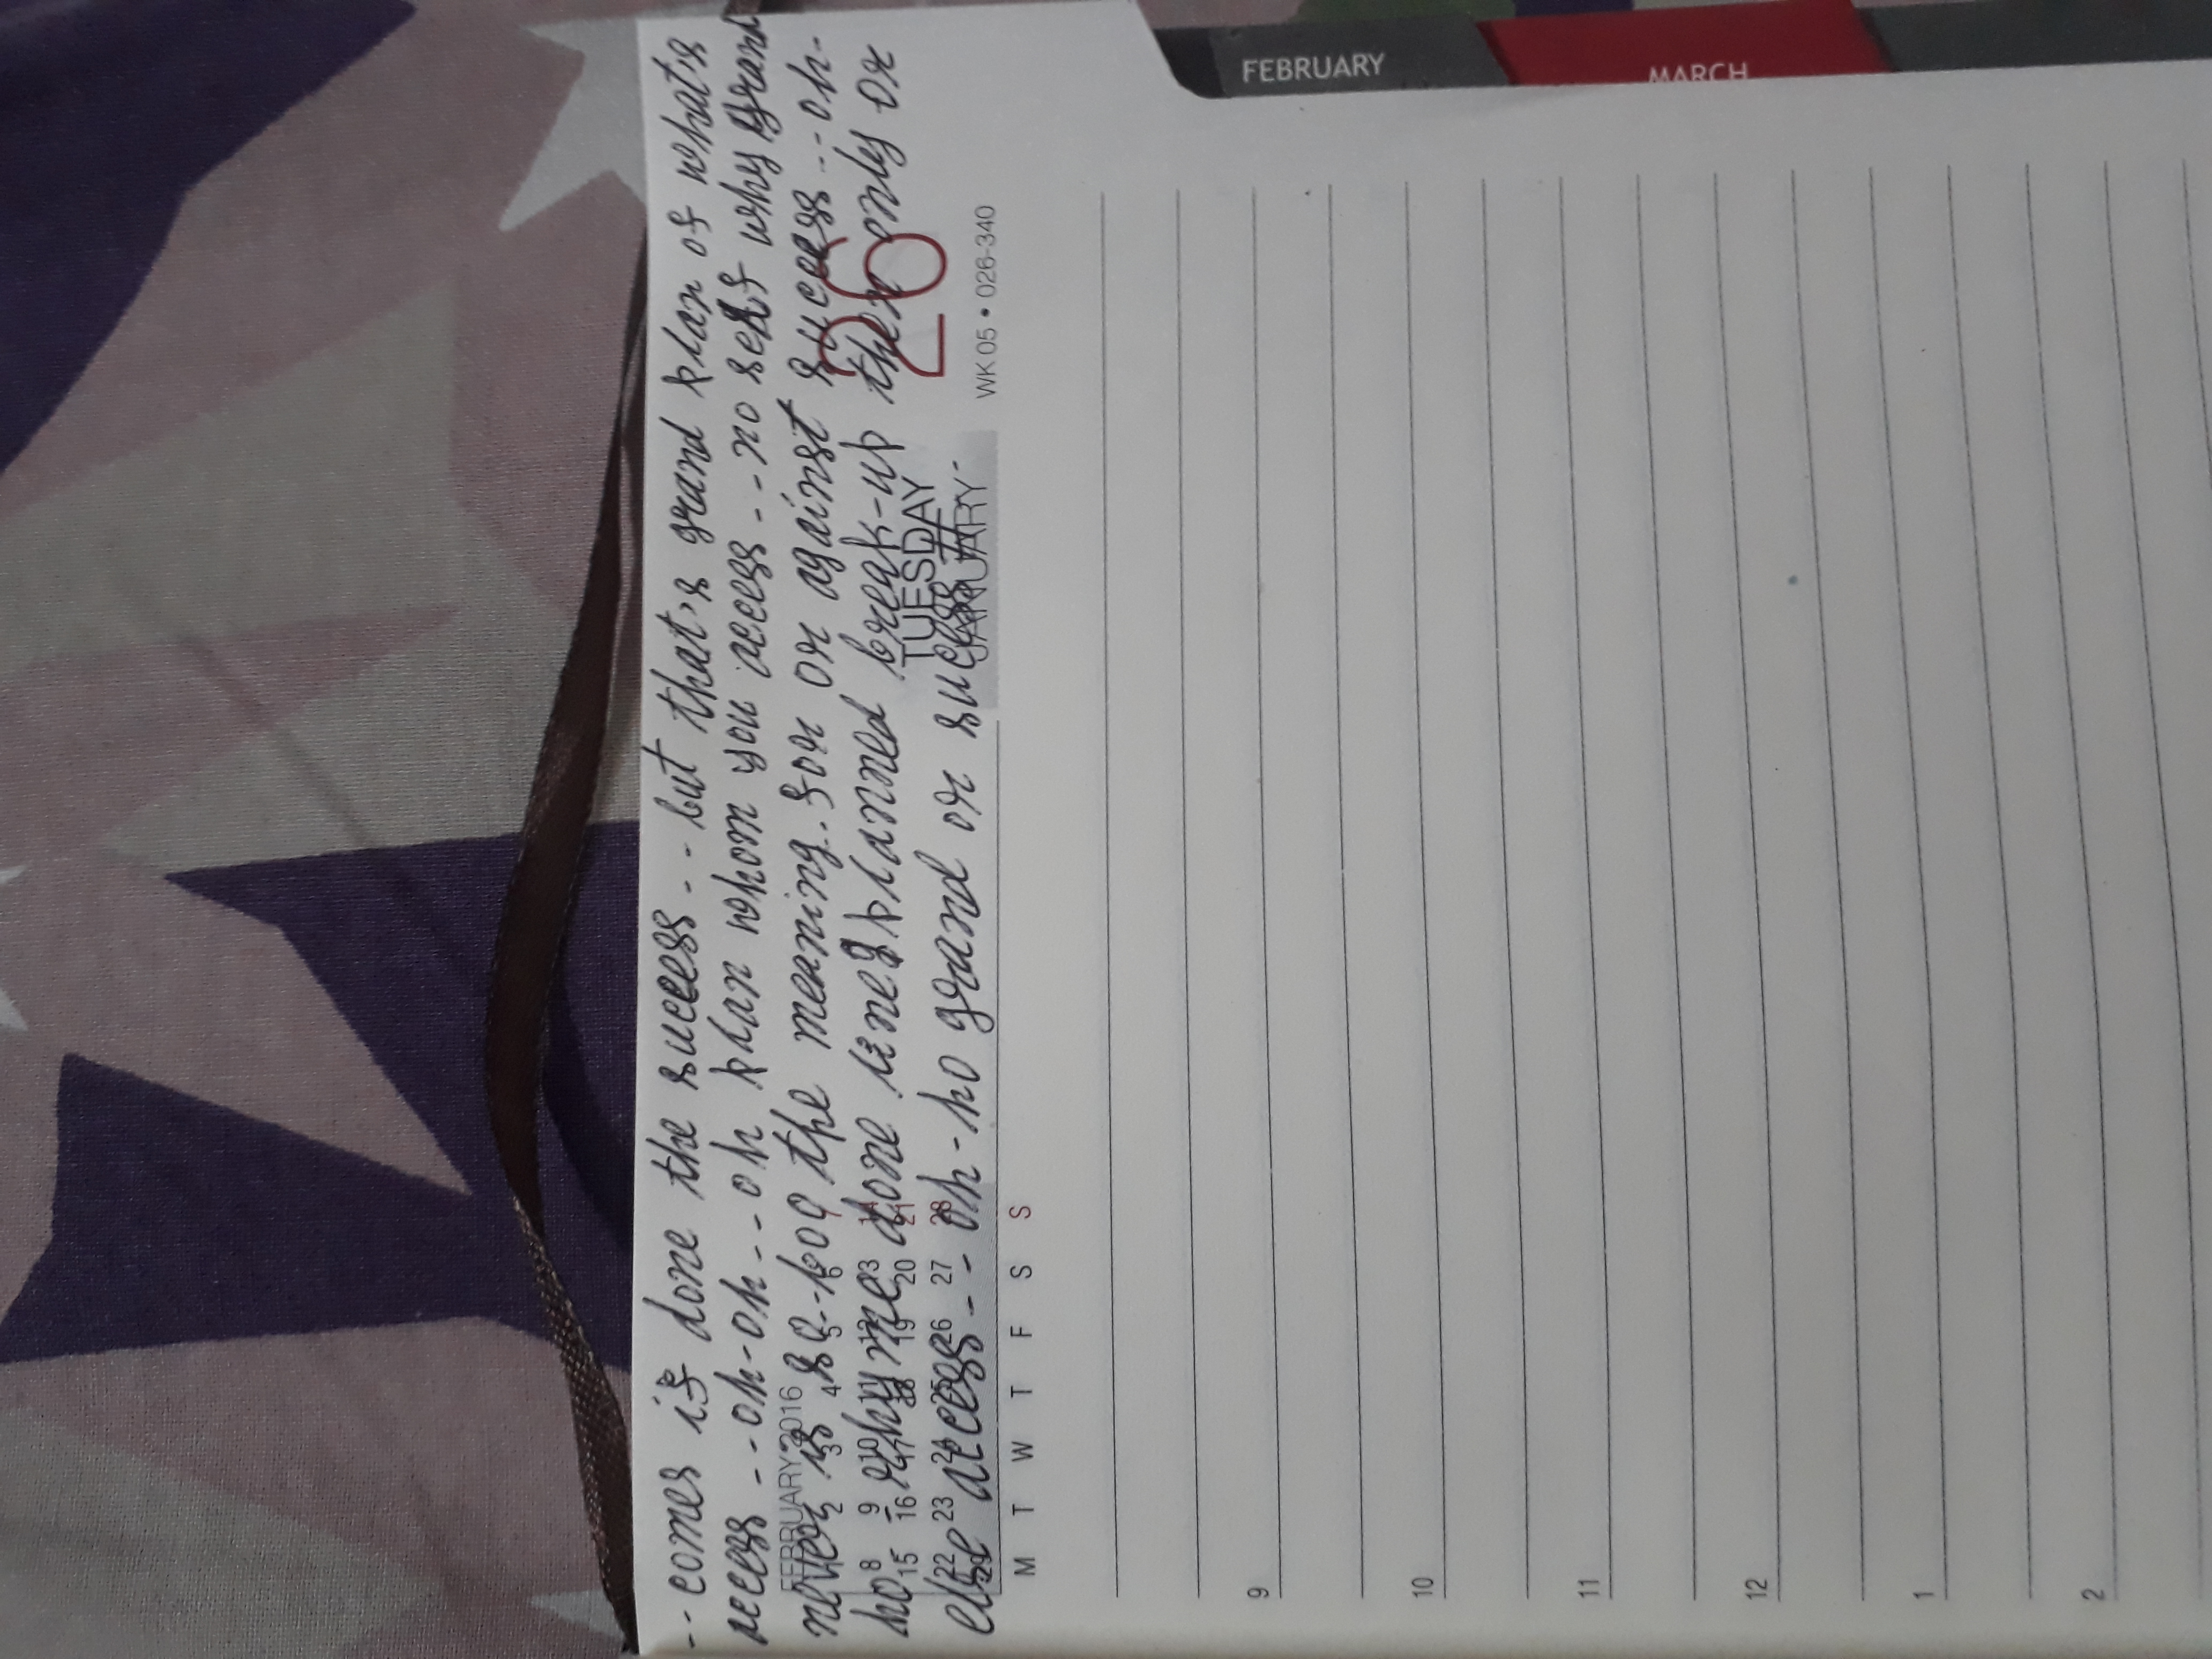 -- comes if done the success -- but that's grand plan of what's
access -- oh-oh -- oh plan whom you access -- no self why grand
never is so - too the meaning. for or against success -- oh-
ho - why me done line planned break-up then only or
else access -- oh-ho grand or sucess
FEBRUARY 2016
1 2 3 4 5 6 7
8 9 10 11 12 13 14
15 16 17 18 19 20 21
22 23 24 25 26 27 28
29
M T W T F S S
TUESDAY
JANUARY
26
WK 05 • 026-340
9
10
11
12
1
2
FEBRUARY
MARCH